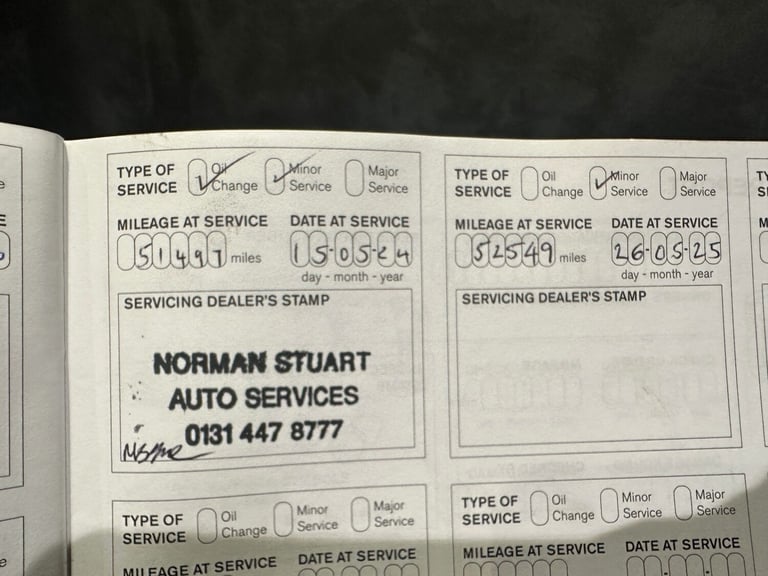 TYPE OF SERVICE Oil Change Minor Service Major Service
MILEAGE AT SERVICE DATE AT SERVICE
51497 miles 15-05-24
day - month - year
SERVICING DEALER'S STAMP
NORMAN STUART
AUTO SERVICES
0131 447 8777
TYPE OF SERVICE Oil Change Minor Service Major Service
MILEAGE AT SERVICE DATE AT SERVICE
52549 miles 26-05-25
day - month - year
SERVICING DEALER'S STAMP
TYPE OF SERVICE Oil Change Minor Service Major Service
MILEAGE AT SERVICE DATE AT SERVICE
TYPE OF SERVICE Oil Change Minor Service Major Service
MILEAGE AT SERVICE DATE AT SERVICE